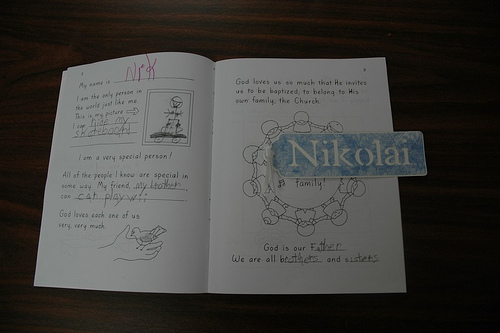 My name is Nik
I am the only person in
the world just like me.
This is my picture
I can ride my
skateboard
I am a very special person!
All of the people I know are special in
some way. My friend, my brother,
can eat play wii
God loves each one of us
very, very much.
God loves us so much that He invites
us to be baptized, to belong to His
own family, the Church.
Nikolai
family!
God is our Father
We are all brothers and sisters